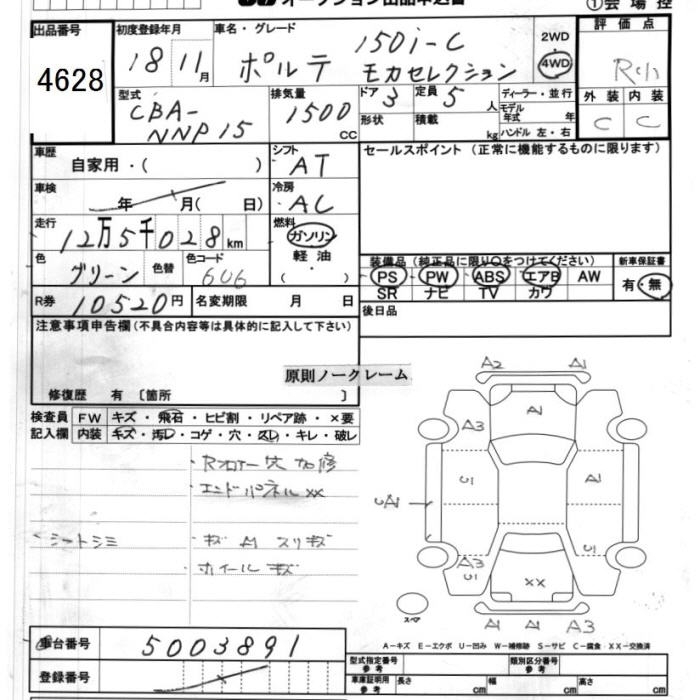 オークション出品申込書
①会場控
出品番号
4628
初度登録年月
18 11月
車名・グレード
ポルテ 150i-C
モカセレクション
2WD
4WD
評価点
外装 内装
C C
型式
CBA-
NNP15
排気量
1500
CC
ドア
3
形状
定員
5人
積載
kg
ディーラー・並行
モデル
年式 年
ハンドル 左・右
車歴
自家用・( )
シフト
AT
セールスポイント (正常に機能するものに限ります)
車検
年 月( 日)
冷房
AC
走行
12万5千028km
燃料
ガソリン
軽油
・( )
色
グリーン
色替
色コード
6U6
装備品 (純正品に限り○をつけてください)
PS PW ABS エアB AW
SR ナビ TV カワ
新車保証書
有・無
R券
10520円
名変期限 月 日
後日品
注意事項申告欄(不具合内容等は具体的に記入して下さい)
原則ノークレーム
修復歴 有 〔箇所 〕
検査員
記入欄
FW キズ・飛石・ヒビ割・リペア跡・×要
内装 キズ・汚レ・コゲ・穴・スレ・キレ・破レ
・Rフロアー穴加修
・エンドパネルXX
・シートシミ
・キズ A1 スリキズ
・ホイールキズ
A2 A1
A1
A3
A1
A1
A3
XX
スペア
A1 A1 A3
車台番号
5003891
登録番号
A-キズ E-エクボ U-凹み W-補修跡 S-サビ C-腐食・XX-交換済
型式指定番号
参考
類別区分番号
参考
車庫証明用
参考
長さ cm
幅 cm
高さ cm